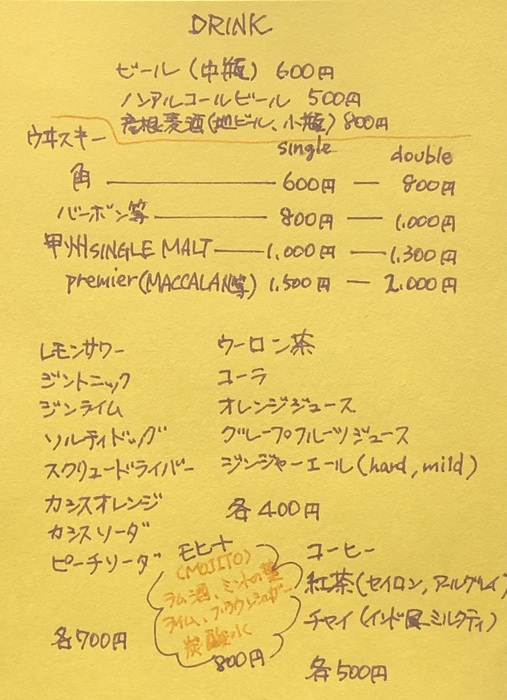 DRINK
ビール (中瓶) 600円
ノンアルコールビール 500円
彦根麦酒(地ビール、小瓶) 800円
ウヰスキー single double
角 600円 — 800円
バーボン等 800円 — 1,000円
甲州SINGLE MALT 1,000円 — 1,300円
premier(MACCALAN等) 1,500円 — 2,000円
レモンサワー
ジントニック
ジンライム
ソルティドッグ
スクリュードライバー
カシスオレンジ
カシスソーダ
ピーチソーダ
各700円
ウーロン茶
コーラ
オレンジジュース
グレープフルーツジュース
ジンジャーエール(hard, mild)
各400円
モヒート
(MOJITO)
ラム酒、ミントの葉
ライム、ブラウンシュガー
炭酸水
800円
コーヒー
紅茶(セイロン, アールグレイ)
チャイ (インド風ミルクティ)
各500円